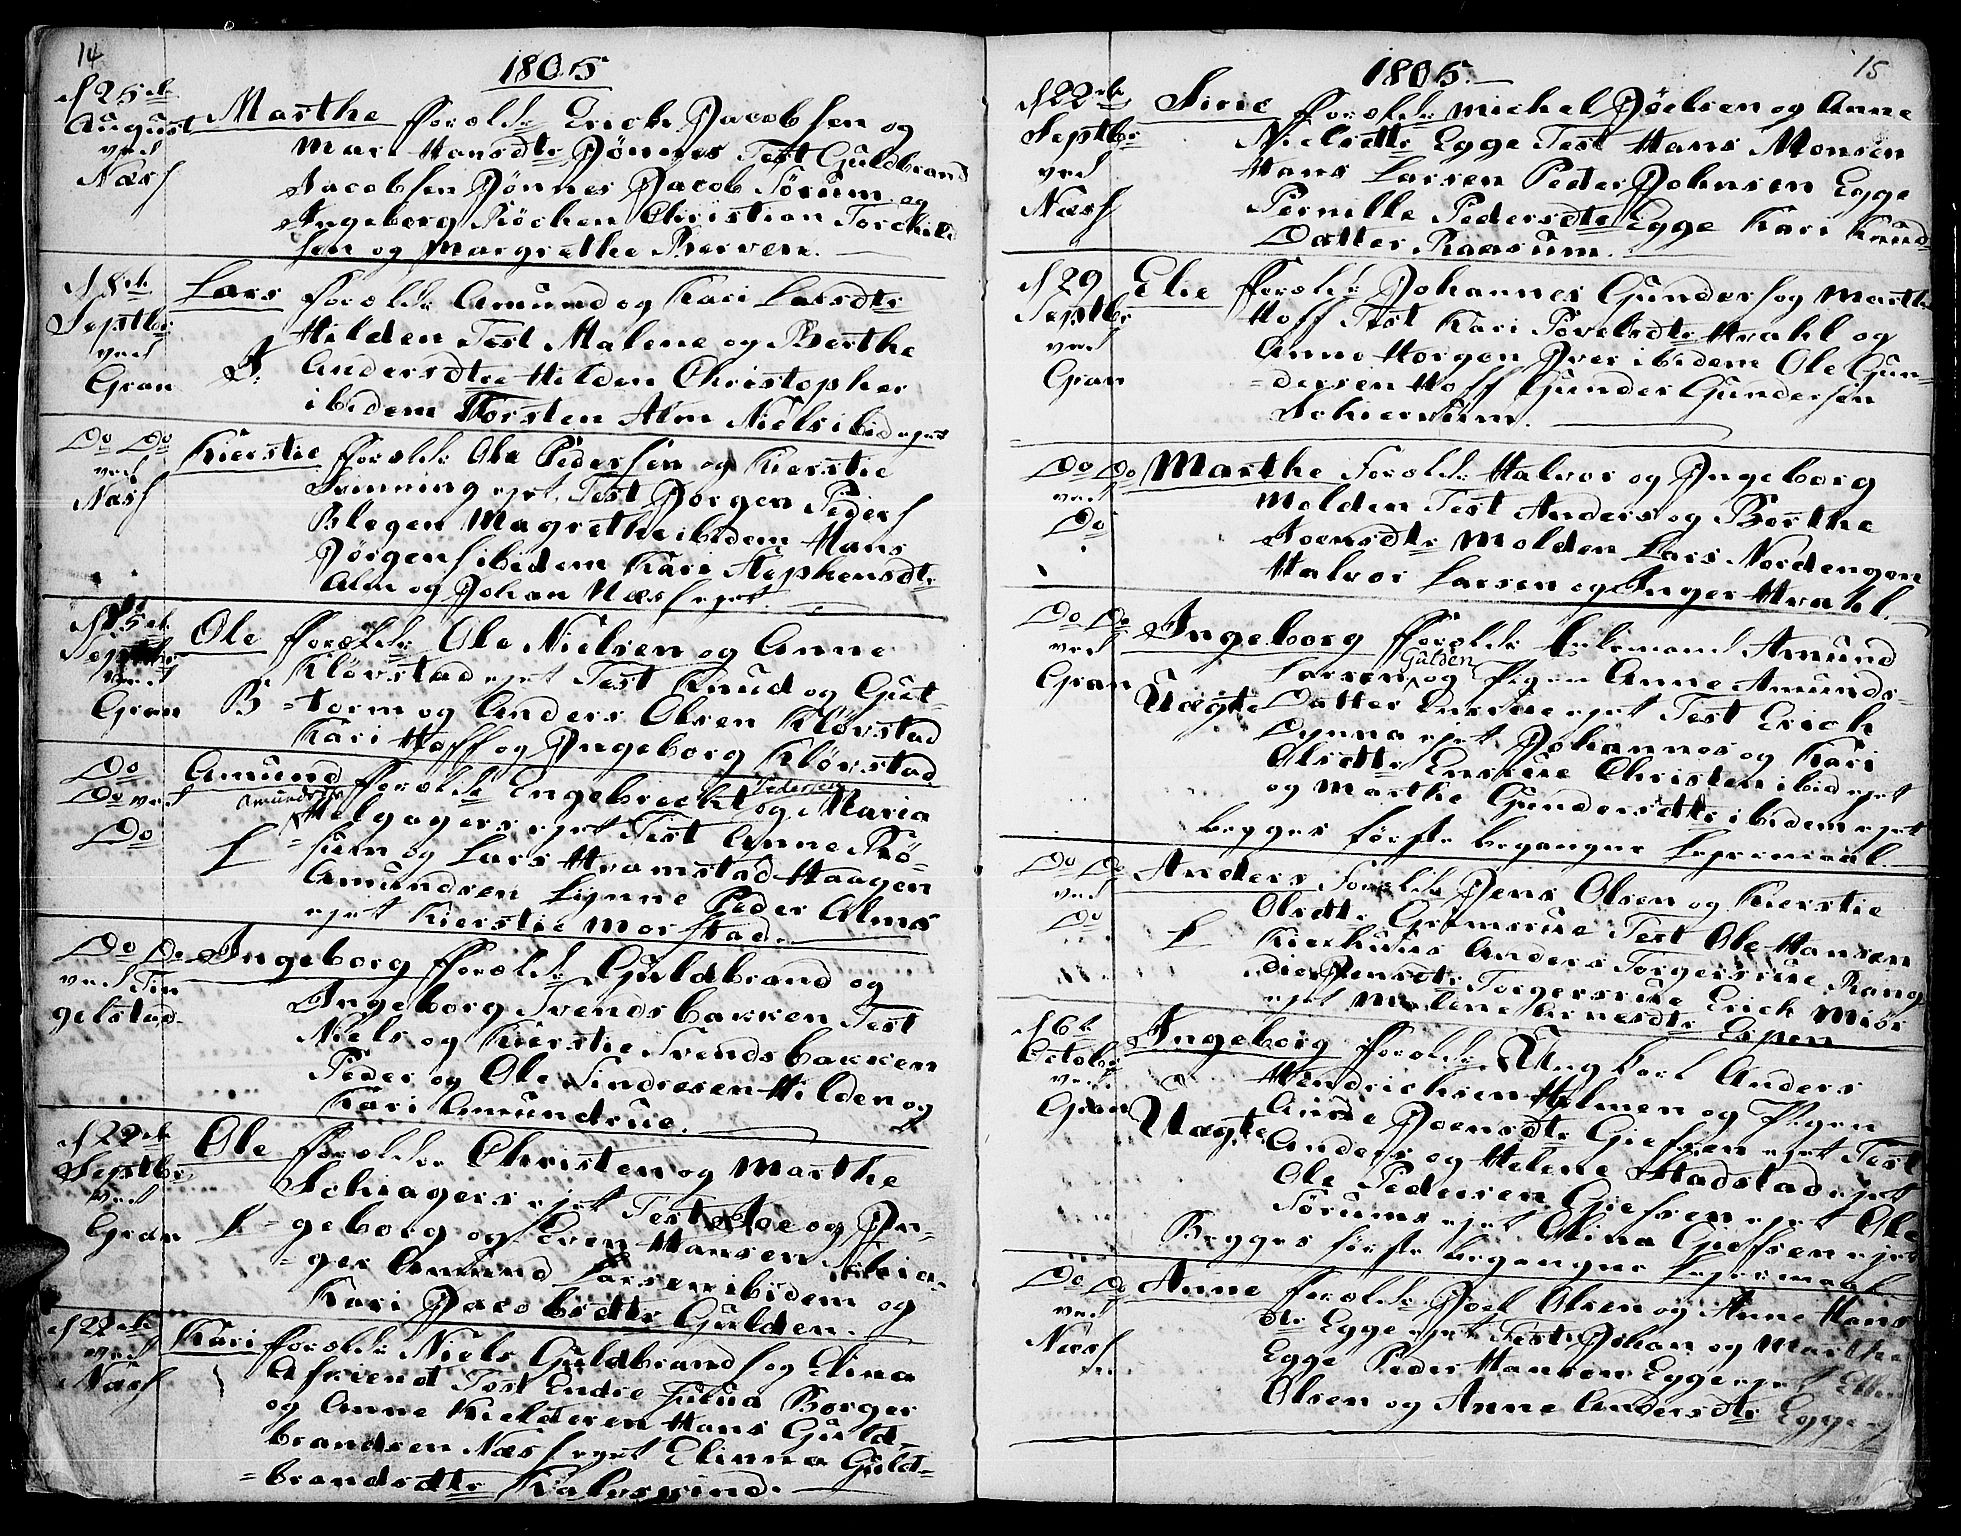 14
1805
d 25de
August
ved
Næss
Marthe Foreldr: Erich Jacobsen og
Mari Hansdtr Jønnes Test Guldbrand
Jacobsen Jønnes Jacob Sørum og
Ingeberg Christian Torchild
sen og Margrethe Berven.
d 8de
Septbr
ved
Gran
Lars Foreldr Amund og Kari Larsdtr
Hilden Test Malene og Berthe
Andersdtre Hilden Christopher
ibidem Torsten Alm Niels ibid ejet
Do Do
ved
Næss
Kierstie Foreldr Ole Pedersen og Kierstie
ejet Test Jørgen Peders
Blegen Magrethe ibidem Hans
Jørgens ibidem Kari Stephensdtr
Alm og Johan Næss ejet.
d 15de
Septbr
ved
Gran
Ole Foreldr Ole Nielsen og Anne
Kløvstad ejet Test Knud og Gut-
B =torm og Anders Olsen Kløvstad
Kari Hoff og Ingeborg Kløvstad
Do
Do ved
Do
Amund Foreldr Engebrecht Pedersen og Maria
Amundsdtr Helgagers ejet Test Anne Rø-
L =siem og Lars Hramstad Haagen
Amundsen Lynne Peder Alms
ejet Kierstie Morstad.
Do Do
ved Tin
gelstad
Ingeborg Foreldr Guldbrand og
Ingeborg Svendsbakken Test
Niels og Kierstie Svendsbakken
Peder og Ole Sindresen Hilden og
Kari Amundrue.
d 22de
Septbr
ved
Gran
Ole Foreldre Christen og Marthe
Schiagers ejet Test og In-
L =geborg og Even Hansen Schia-
=ger Amund Larsen ibidem og
Kari Jacobsdtr Gulden.
d 22de
ved
Næss
Kari Foreldr Niels Guldbrands og Elina
Test Endre Borger
og Anne Kielderen Hans Guld-
brandsen Næss ejet Elinna Guld=
=brandsdtr Kalvskind.
15
1805.
d 22de
Septbr
ved
Næss
Sirie Foreldr Michel Jöelsen og Anne
Nielsdtr Egge Test Hans Monsen
Hans Larsen Peder Johnsen Egge
Pernille Pedersdtr Egge Kari Knud-
Datter Raasum.
d 29
Septbr
ved
Gran
Elie Foreldr Johannes Gunders og Marthe
Hoff Test Kari Povelsdtr Hvahl og
Anne Horgen Iver ibidem Ole Gun-
=dersen Hoff Gunder Gundersen
Schiervum.
Do Do
ved
Do
Marthe Foreldr Halvor og Ingeborg
Molden Test Anders og Berthe
Joensdtr Molden Lars Nordengen
Halvor Larsen og Inger Hvahl.
Do Do
ved
Gran
Ingeborg Foreldr Enkemand Amund
Larsen Gulden og Pigen Anne Amunds-
Uægte Datter Ensrue ejet Test Erich
Dynna ejet Johannes og Kari
Olsdtr Ensrue Christen ibid ejet
og Marthe Gundersdtr ibidem ejet
begges første begangne Lejermaal.
Do Do
ved
Do
Anders Foreldr Jens Olsen og Kierstie
Olsdtr Grimsrue Test Ole Hansen
L Kiexhuus Anders Torgersrue Rang
die Jensdtr Torgersrue Erich Miør
ejet Malene Espen
d 6te
October
ved
Gran
Ingeborg Foreldr Ungkarl Anders
Hendrichsen Holmen og Pigen
Uægte Anne Joensdtr Giefsen ejet Test
Anders og Helene Stadstad ejet
Ole Pedersen Giefsen ejet Ole
Sørums ejet Elina Giefsen ejet
Begges første begangne Lejermaal
Do Do
ved
Næss
Anne Foreldr Joel Olsen og Anne Hans
dtr Egge ejet Test Johan og Marthe
Egge Peder Hansen Egge ejet
Olsen og Anne Andersdtr Egge